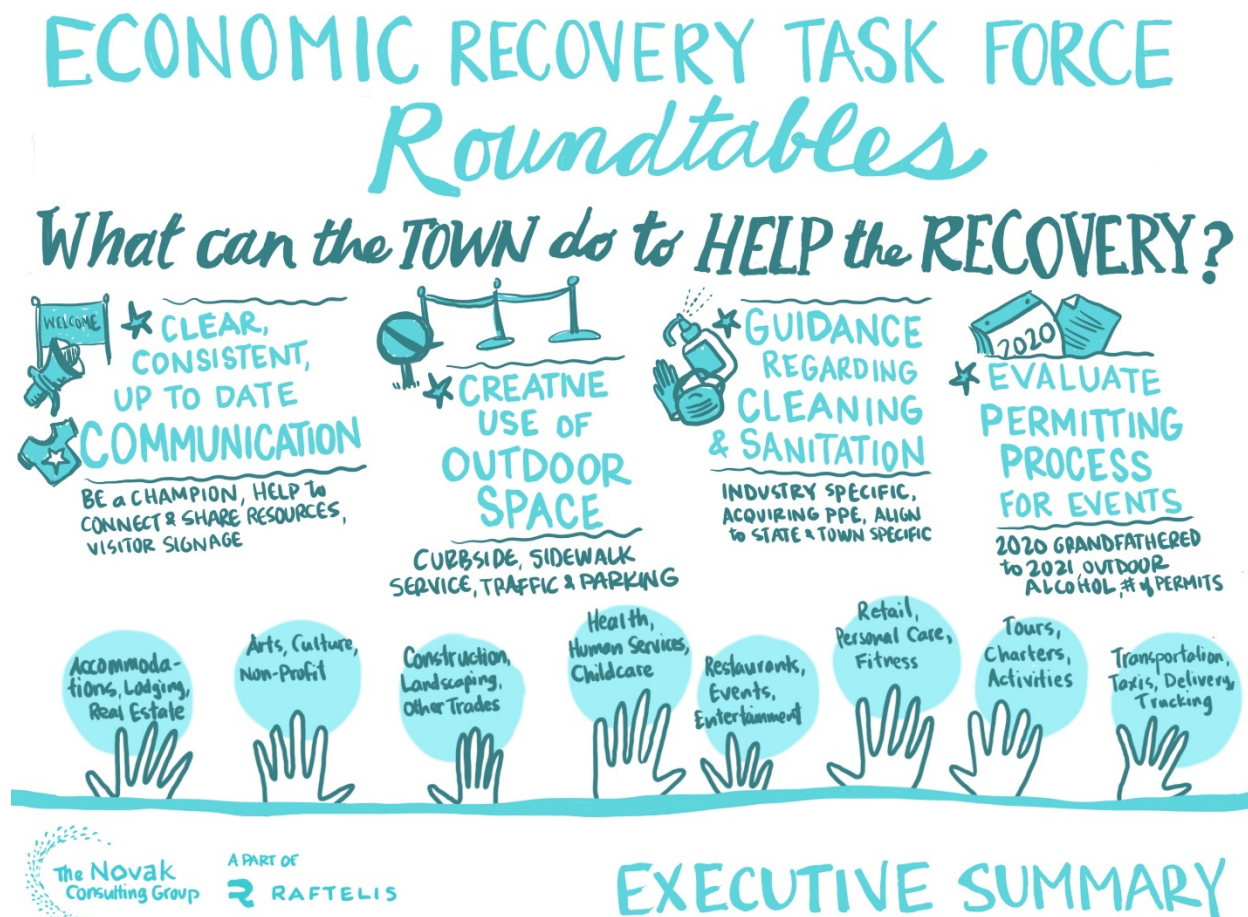 ECONOMIC RECOVERY TASK FORCE
Roundtables
What can the TOWN do to HELP the RECOVERY?
WELCOME
CLEAR,
CONSISTENT,
UP TO DATE
COMMUNICATION
BE a CHAMPION, HELP to
CONNECT & SHARE RESOURCES,
VISITOR SIGNAGE
CREATIVE
USE OF
OUTDOOR
SPACE
CURBSIDE, SIDEWALK
SERVICE, TRAFFIC & PARKING
GUIDANCE
REGARDING
CLEANING
& SANITATION
INDUSTRY SPECIFIC,
ACQUIRING PPE, ALIGN
to STATE & TOWN SPECIFIC
2020
EVALUATE
PERMITTING
PROCESS
FOR EVENTS
2020 GRANDFATHERED
to 2021, OUTDOOR
ALCOHOL, # of PERMITS
Accommoda-
tions, Lodging,
Real Estate
Arts, Culture,
Non-Profit
Construction,
Landscaping,
Other Trades
Health,
Human Services,
Childcare
Restaurants,
Events,
Entertainment
Retail,
Personal Care,
Fitness
Tours,
Charters,
Activities
Transportation,
Taxis, Delivery,
Trucking
The Novak
Consulting Group
A PART OF
RAFTELIS
EXECUTIVE SUMMARY